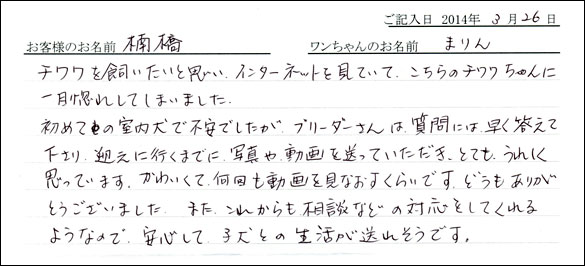 ご記入日 2014年 3月26日
お客様のお名前 楠橋 ワンちゃんのお名前 まりん
チワワを飼いたいと思い、インターネットを見ていて、こちらのチワワちゃんに
一目惚れしてしまいました。
初めての室内犬で不安でしたが、ブリーダーさんは、質問には、早く答えて
下さり、迎えに行くまでに、写真や、動画を送っていただき、とても、うれしく
思っています。かわいくて、何回も動画を見なおすくらいです。どうもありが
とうございました。また、これからも相談などの対応をしてくれる
ようなので、安心して、子犬との生活が送れそうです。